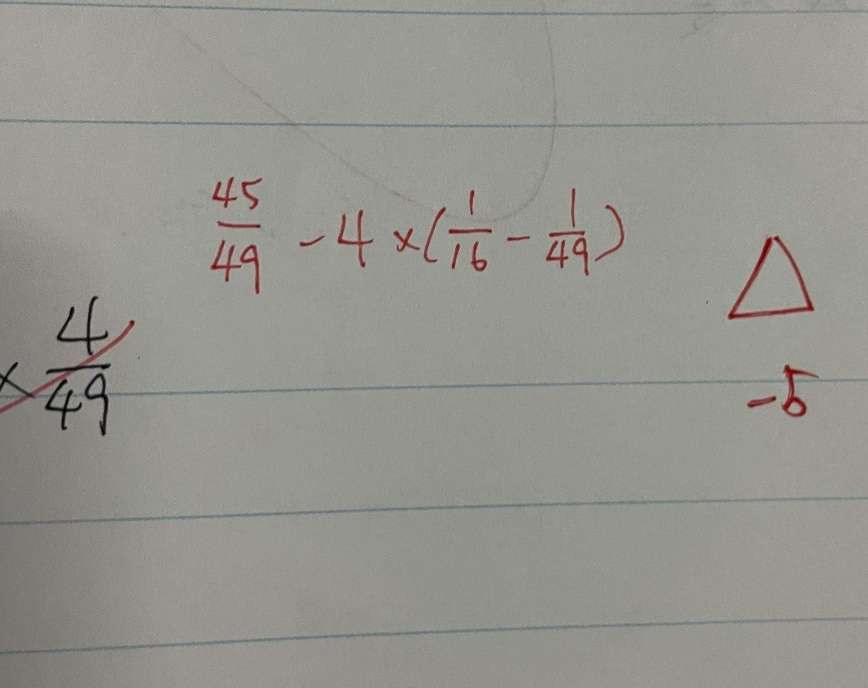 45/49 - 4 × (1/16 - 1/49)
× 4/49
△
-5